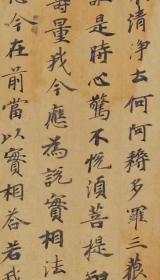 清淨去何阿耨多羅三藐
誰是時心驚不恱須菩提
壽量我今應為說實相法
今在前當以實相答若我